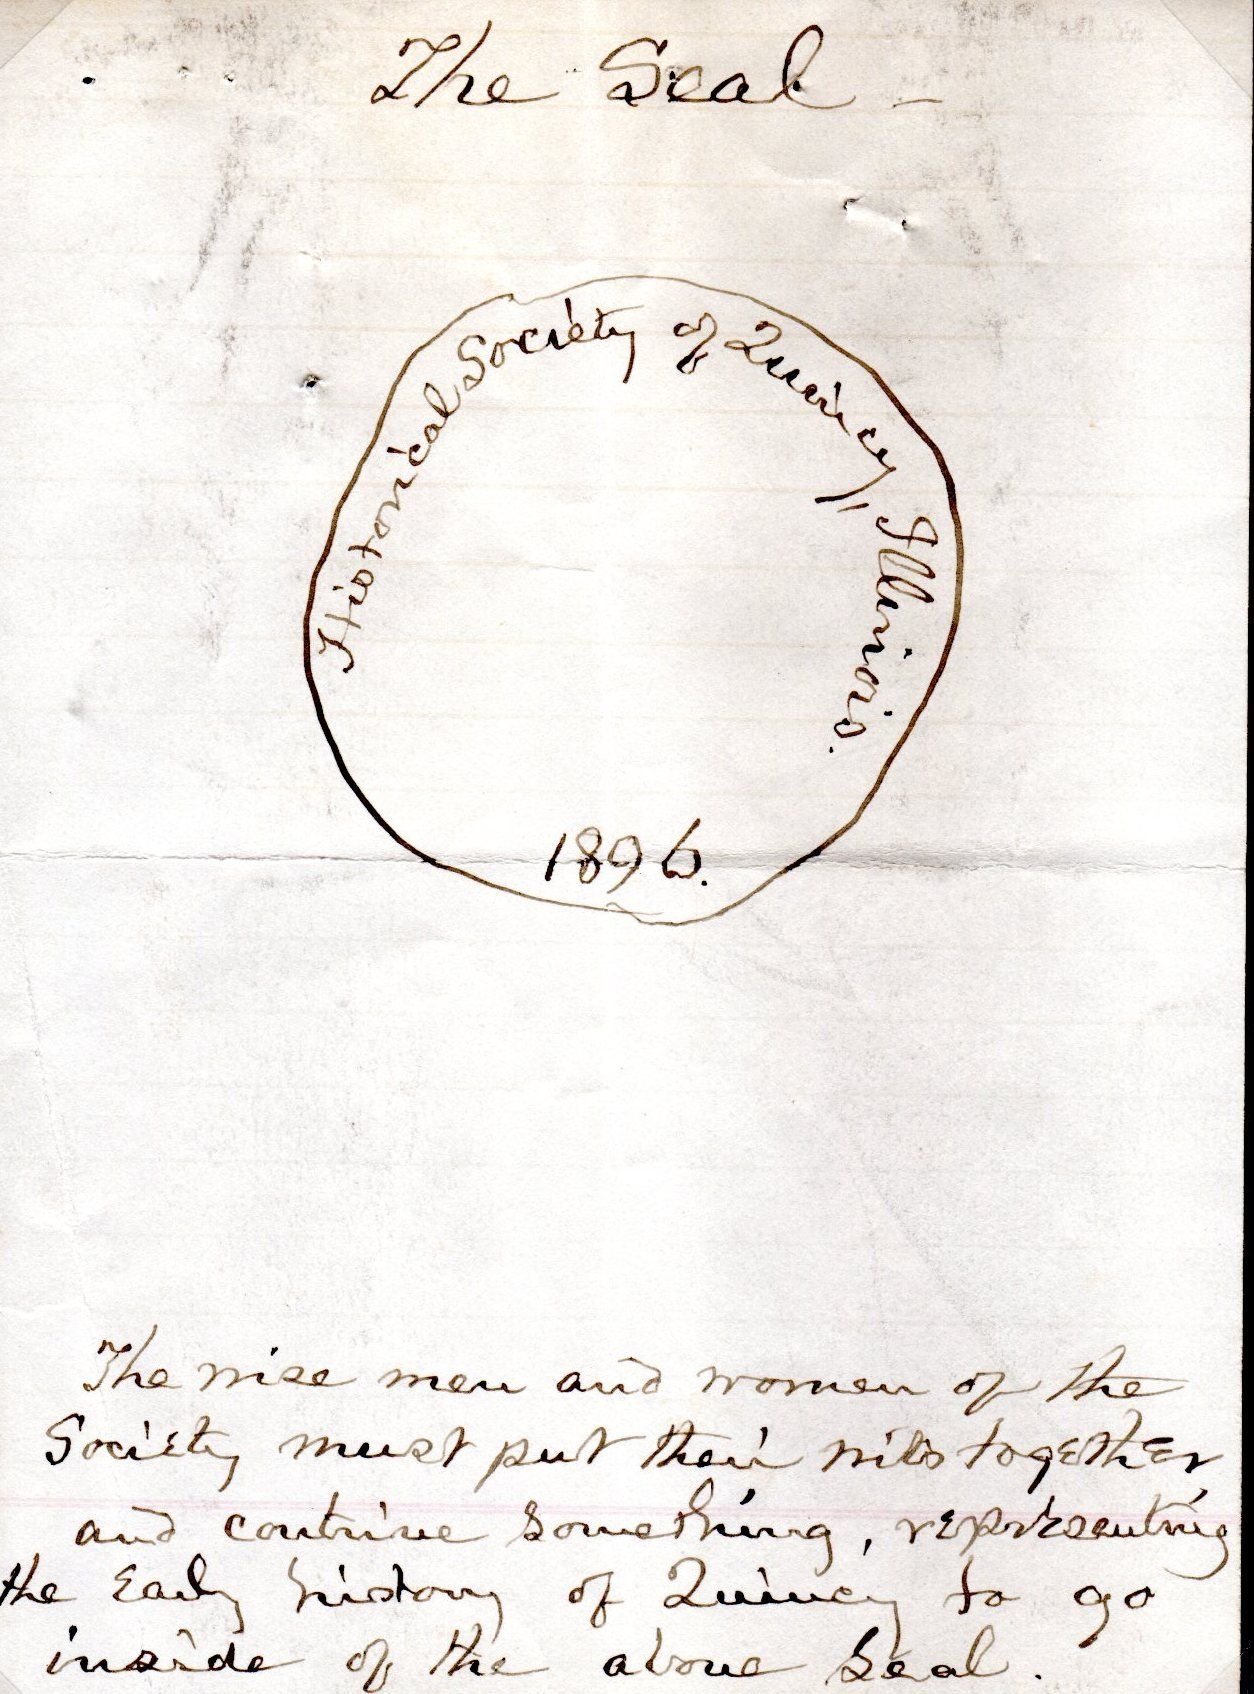 The Seal -
Historical Society of Quincy, Illinois.
1896.
The wise men and women of the
Society must put their wits together
and contrive something, representing
the Early history of Quincy to go
inside of the above Seal.